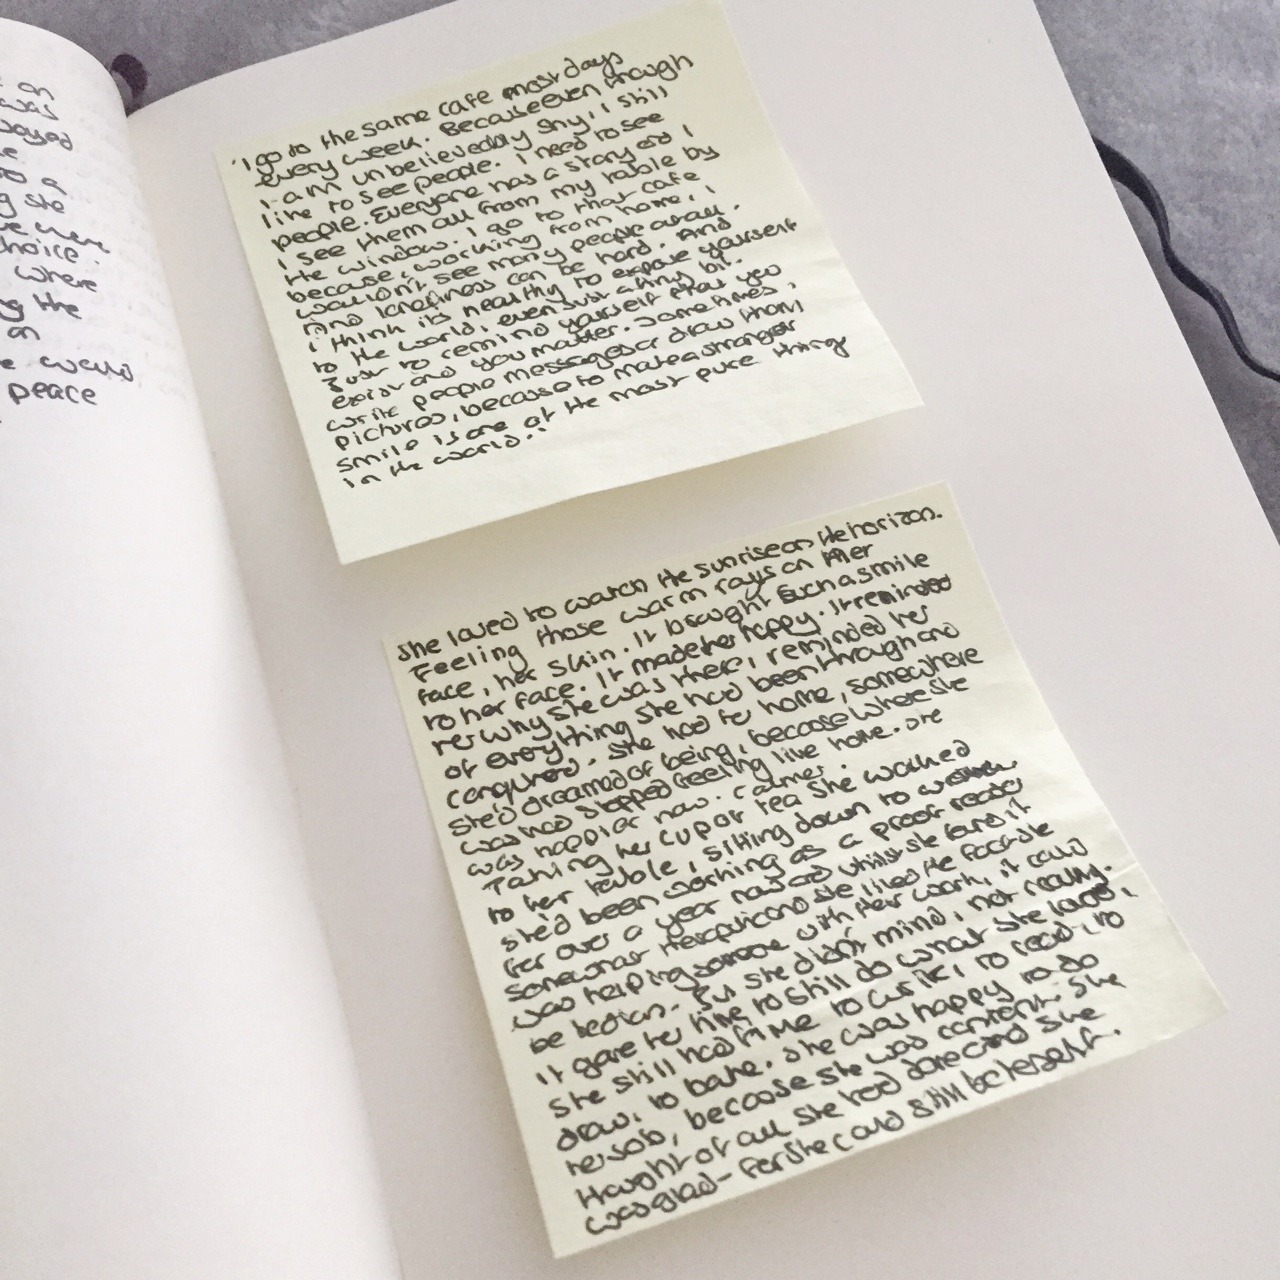 on
was
a
choice.
where
the
on
would
peace
'I go to the same cafe most days
every week. Because even though
I am unbelievedly shy, I still
like to see people. I need to see
people. Everyone has a story and I
I see them all from my table by
the window. I go to that cafe
because, working from home, I
wouldn't see many people at all.
And loneliness can be hard. And
I think its healthy to expose yourself
to the world, even just a tiny bit.
Just to remind yourself that you
exist and you matter. Sometimes, I
write people messages or draw them
pictures, because to make a stranger
smile is one of the most pure things
in the world.'
She loved to watch the sunrise on the horizon.
Feeling those warm rays on her
face, her skin. It brought such a smile
to her face. It made her happy. It reminded
her why she was there, reminded her
of everything she had been through and
conquered. She had for home, somewhere
she'd dreamed of being, because where she
was had stopped feeling like home. She
was happier now. Calmer.
Taking her cup of tea she walked
to her table, sitting down to
she'd been working as a proof reader
for over a year now and whilst she found it
somewhat therapeutic and she liked the fact she
was helping someone with their work, it could
be tedious. But she didn't mind, not really.
It gave her time to still do what she loved,
she still had time to write, to read, to
draw, to bake. She was happy to do
her job, because she was content. She
thought of all she had done and she
was glad - for she could still be herself.